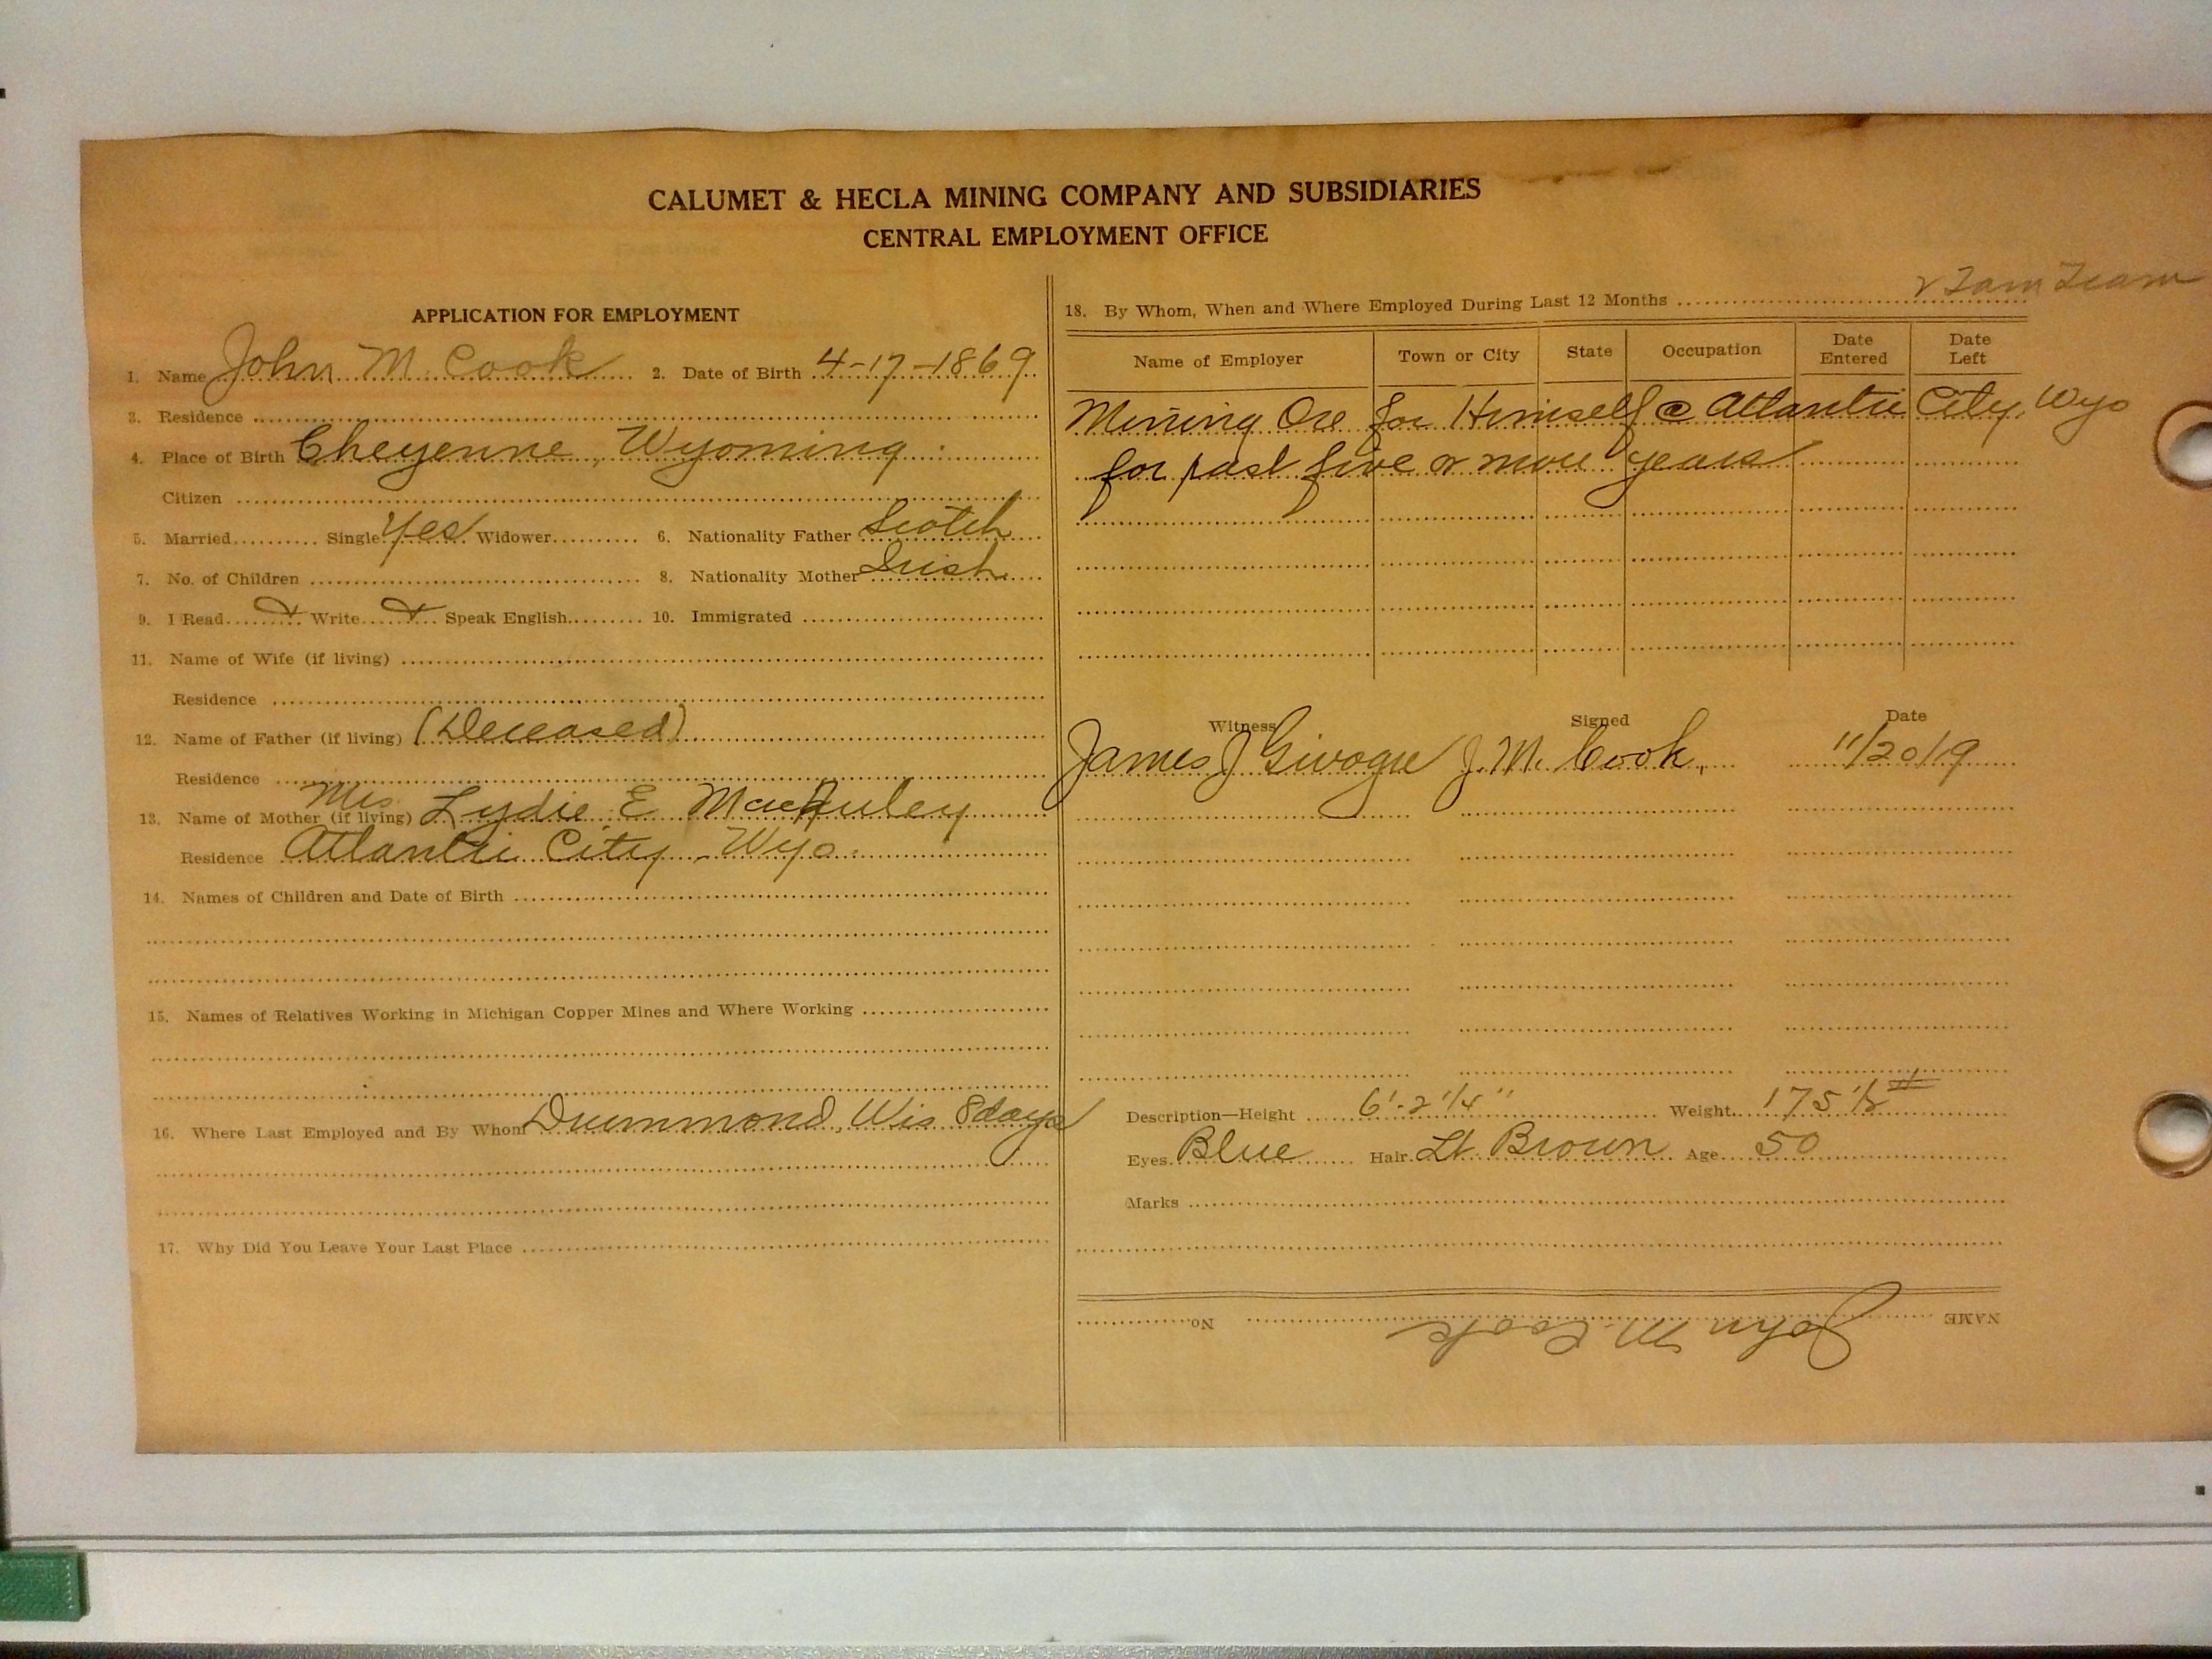 CALUMET & HECLA MINING COMPANY AND SUBSIDIARIES
CENTRAL EMPLOYMENT OFFICE
APPLICATION FOR EMPLOYMENT
1. Name John M. Cook 2. Date of Birth 4-17-1869
3. Residence
4. Place of Birth Cheyenne, Wyoming.
Citizen
5. Married Single Yes Widower 6. Nationality Father Scotch
7. No. of Children 8. Nationality Mother Irish
9. I Read Write Speak English 10. Immigrated
11. Name of Wife (if living)
Residence
12. Name of Father (if living) (Deceased)
Residence
13. Name of Mother (if living) Mrs Lydie E MacAuley
Residence Atlantic City, Wyo.
14. Names of Children and Date of Birth
15. Names of Relatives Working in Michigan Copper Mines and Where Working
16. Where Last Employed and By Whom Drummond, Wis 8 days
17. Why Did You Leave Your Last Place
18. By Whom, When and Where Employed During Last 12 Months
Name of Employer Town or City State Occupation Date Entered Date Left
Mining Ore for Himself @ Atlantic City, Wyo
for past five or more years
Witness Signed Date
James J Givogue J. M. Cook, 11/20/19
Description—Height 6'-2 1/4" Weight 175 1/2 #
Eyes Blue Hair Lt. Brown Age 50
Marks
NAME John M. Cook No.